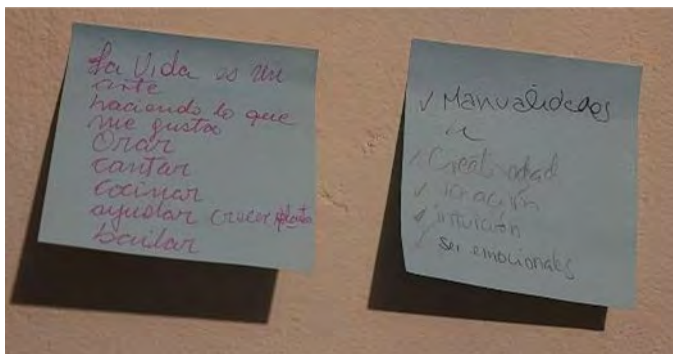 La Vida es un
arte
haciendo lo que
me gusta
Orar
cantar
cocinar
ayudar crecer
bailar
✓ Manualidades
✓ Creatividad
✓
✓ intuición
✓ ser emocionales